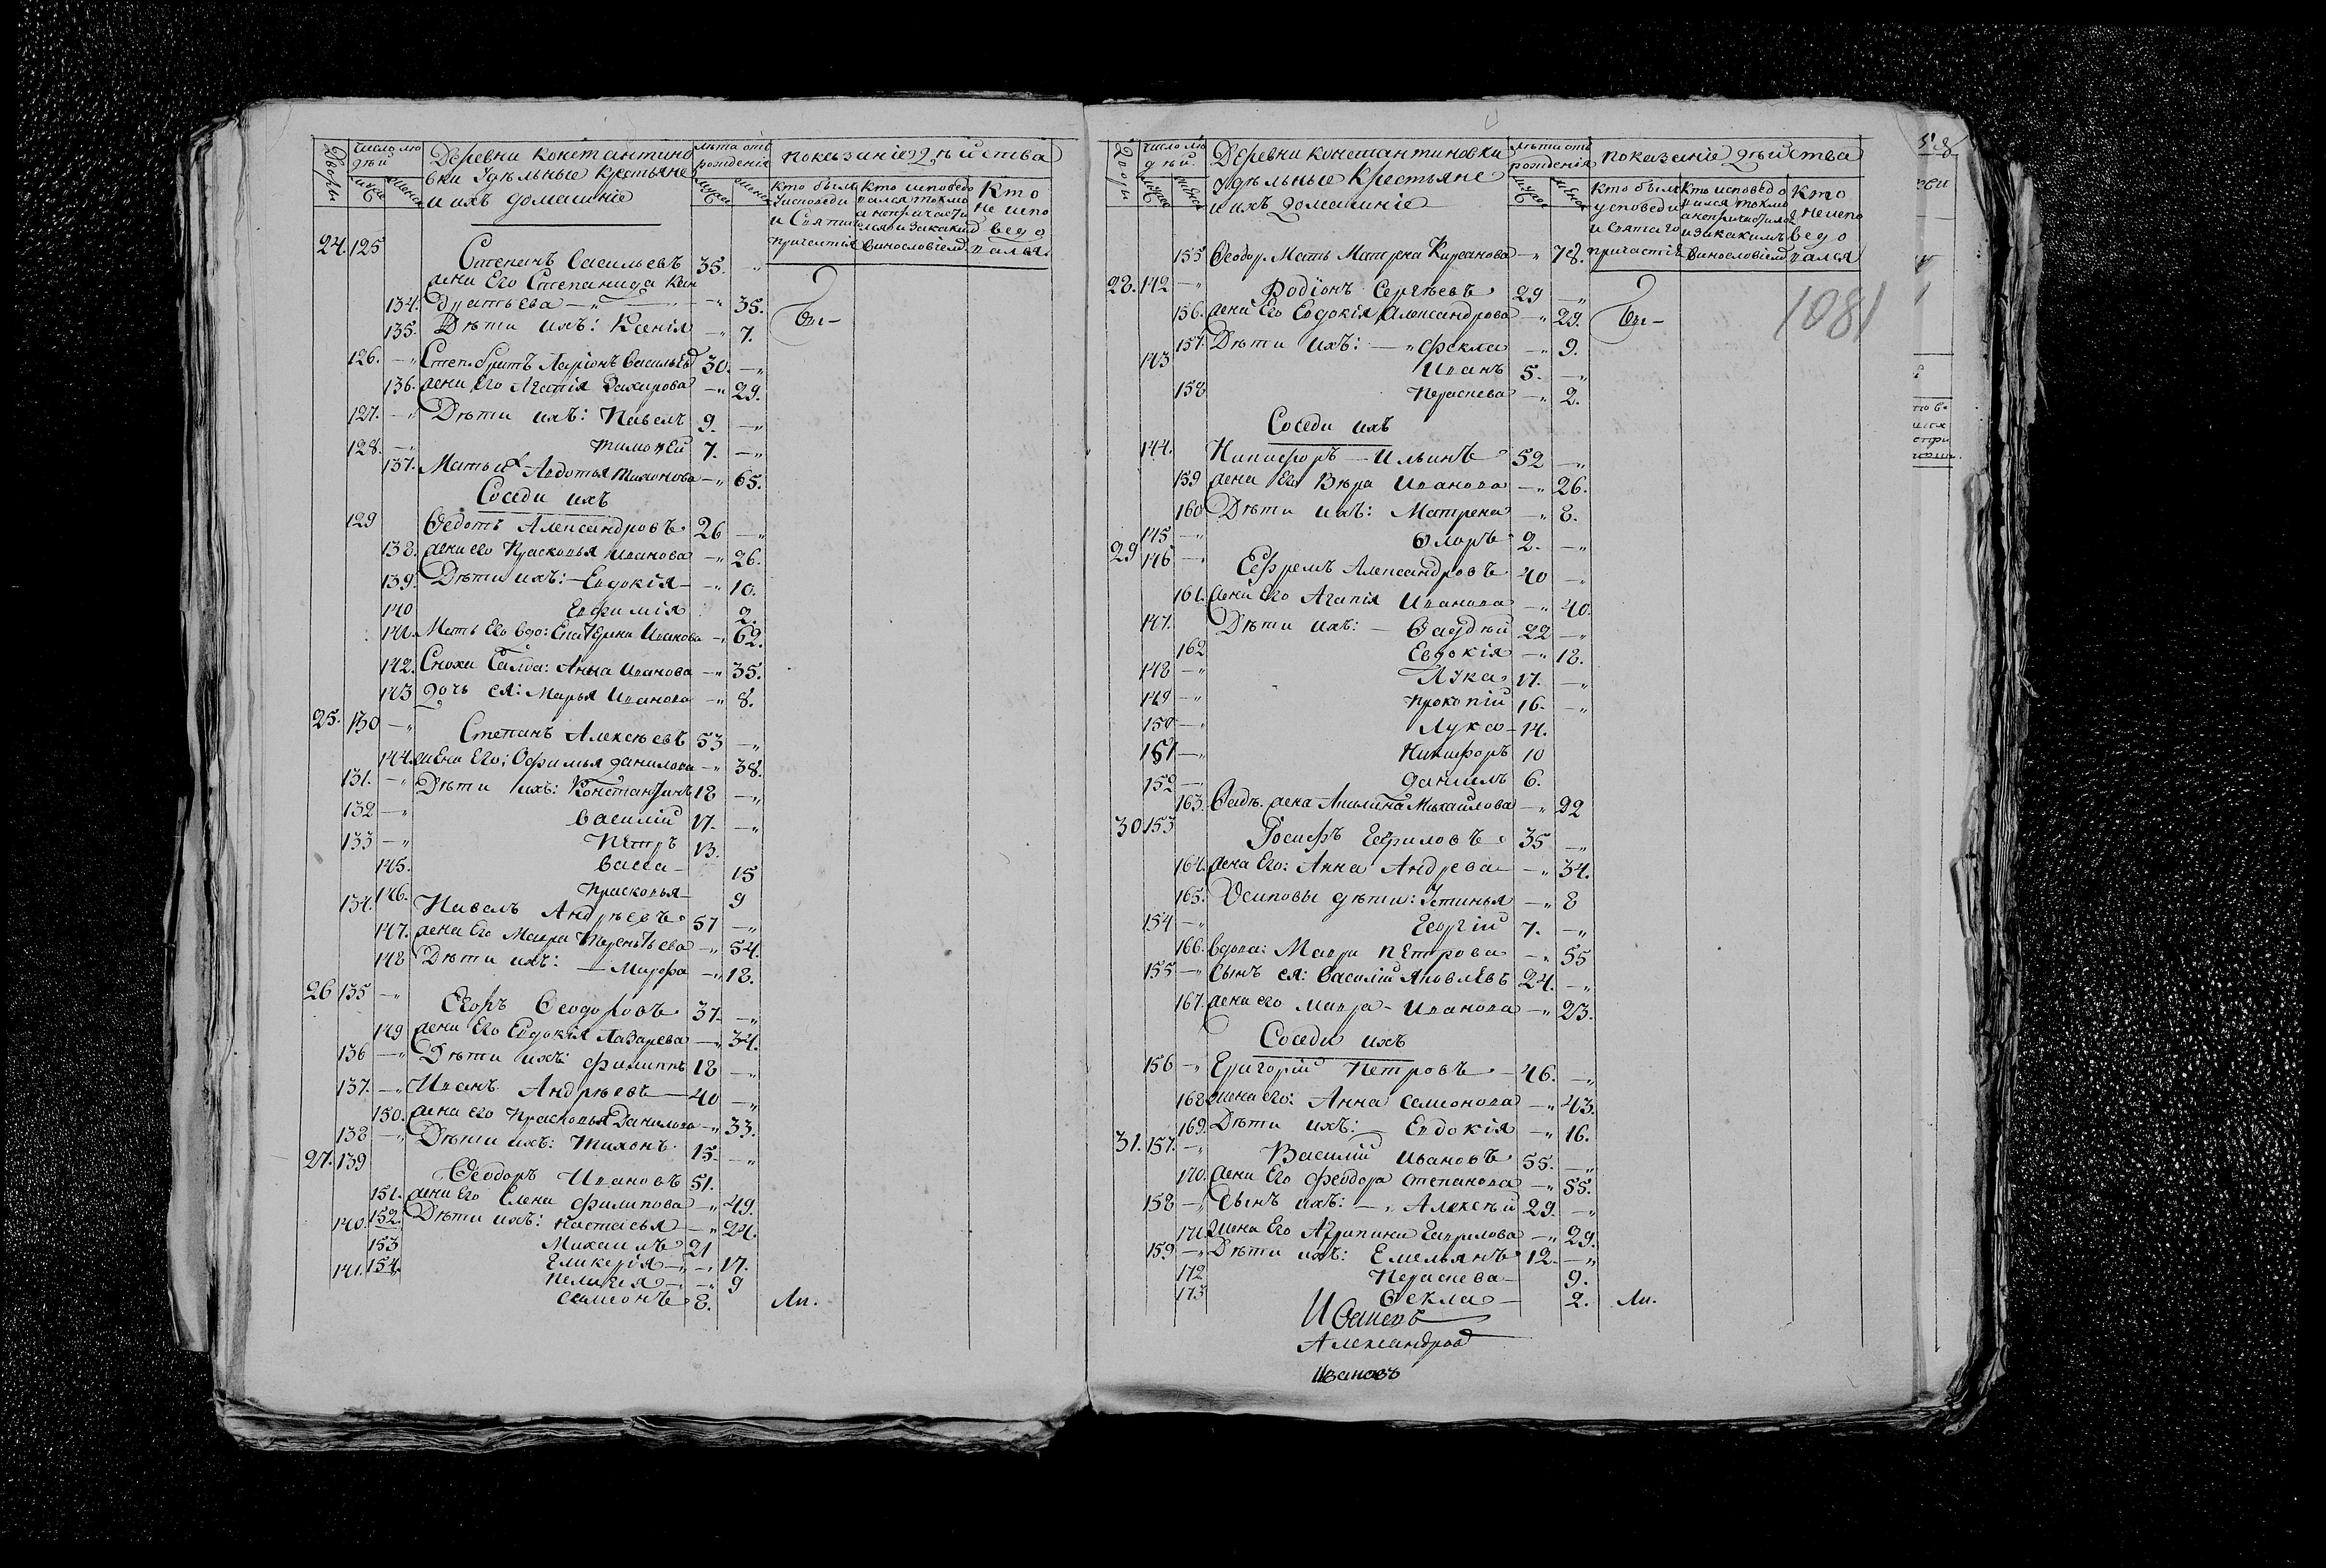 Дворы
Число людей
муж
женск
Деревни Константино
вки Удѣльные крестьяне
и ихъ домашніе
лѣта отъ
рожденія
муж
женск
показаніе дѣйства
Кто были
у исповеди
и Святаго
причастія
Кто исповедо
вался токмо
а непричасти
лся и за какимъ
винословіемъ
Кто
не испо
ведо
вался
24. 125 Степанъ Васильевъ 35. "
жена Его Степанида Кон
134. дратьева — " — " 35.
135. Дѣти ихъ: Ксенія — " 7. бы-
126. — " Степ. братъ Ларіонъ Васильевъ 30. — "
136. жена Его Агафія Захарова — " 29.
127. — " Дѣти ихъ: Павелъ 9. — "
128. — " Тимофей 7. — "
137. Мать их Авдотья Тихонова — " 65.
Соседи ихъ
129 Федотъ Александровъ 26 — "
138. жена его Прасковья Иванова — " 26.
139. Дѣти ихъ: — Евдокія — " 10.
140 Евфимія 2.
141. Мать Его вдо: Екатерина Иванова — " 62.
142. Сноха Салда: Анна Иванова — " 35.
143 дочь ея: Марья Иванова — " 8.
25. 130 — " Степанъ Алексѣевъ 53 — "
144. жена Его: Офимья Данилова — " 38.
131. — " Дѣти ихъ: Константинъ 18 — "
132 — " Василій 17. — "
133 — " Петръ 13.
145. Васса — 15
146. Прасковья — 9
134. Павелъ Андрѣевъ 57 — "
147. жена Его Мавра Терентьева — " 54.
148 Дѣти ихъ: — Марфа — " 18.
26 135 — " Егоръ Феодоровъ 37. — "
149 жена Его Евдокія Лазарева — " 34.
136 — " Дѣти ихъ: Филиппъ 18 — "
137. — " Иванъ Андрѣевъ — 40 — "
150. жена его Прасковья Данилова — " 33.
138 — " Дѣти ихъ: Тихонъ 15. — "
27. 139 Феодоръ Ивановъ 51.
151. жена Его Елена Филипова — " 49.
152. Дѣти ихъ: Настасья — " 24.
140. Михаилъ 21
153 Гликерія — " — " 17.
154. Пелагея — " — " 9
141. Семіонъ 8. Ли.
Дворы
Число лю
дей
муж
женск
Деревни Константиновки
Удѣльные Крестьяне
и ихъ Домашніе
лѣта отъ
рожденія
муж
женск
показаніе дѣйства
Кто были
у споведи
и Святаго
причастія
Кто исповедо
вался токмо
а непричастился
и за какимъ
винословіемъ
Кто
не испо
ведо
вался
1081
155 Феодор. Мать Матрена Кирсанова — " 78.
28. 142 — " Родіонъ Сергѣевъ 29 — "
156. жена Его Евдокія Александрова — " 29. бы-
157. Дѣти ихъ: — " Фекла — " 9.
143 Иванъ 5. — "
158 Параскева — " 2.
Соседи ихъ
144. Никифоръ — Ильинъ 52 — "
159 жена Его Вѣра Иванова — " 26.
160 Дѣти ихъ: Матрена — " 8.
145 — " Флоръ 2. — "
29 146 — " Ефремъ Александровъ 40 — "
161. жена Его Агапія Иванова — " 40.
147. Дѣти ихъ: — Фадѣй 22 — "
162 Евдокія — " 18.
148 — " Лука 17. — "
149 — " Прокопій 16. — "
150 — " Лука — 14.
151 — " Никифоръ 10
152 — Данилъ 6.
163. Фадѣ. жена Акилина Михайлова — " 22
30 153 Іосифъ Гавриловъ 35 — "
164. жена Его: Анна Андрева — " 34.
165. Осиповы дѣти: Устинья — " 8
154 — " Георгій 7. — "
166. вдова: Мавра Петрова — " 55
155 — " Сынъ ея: Василій Яковлевъ 24. — "
167. жена его Мавра — Иванова — " 23.
Соседи ихъ
156 — " Григорій Петровъ — 46. — "
168. жена его: Анна Семіонова — " 43.
169. Дѣти ихъ: — Евдокія — " 16.
31. 157. — " Василій Ивановъ 55. — "
170. жена Его Феодора Степанова — " 55.
158 — " Сынъ ихъ: — " Алексѣй 29. — "
171. Жена Его Агрипина Гаврилова — " 29.
159. — " Дѣти ихъ: Емельянъ 12. — "
172 Параскева — 9.
173 Фекла — 2. Ли.
Александров
Ивановъ
58